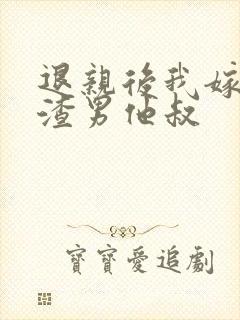 退親後我嫁
渣男他叔
寶寶愛追劇